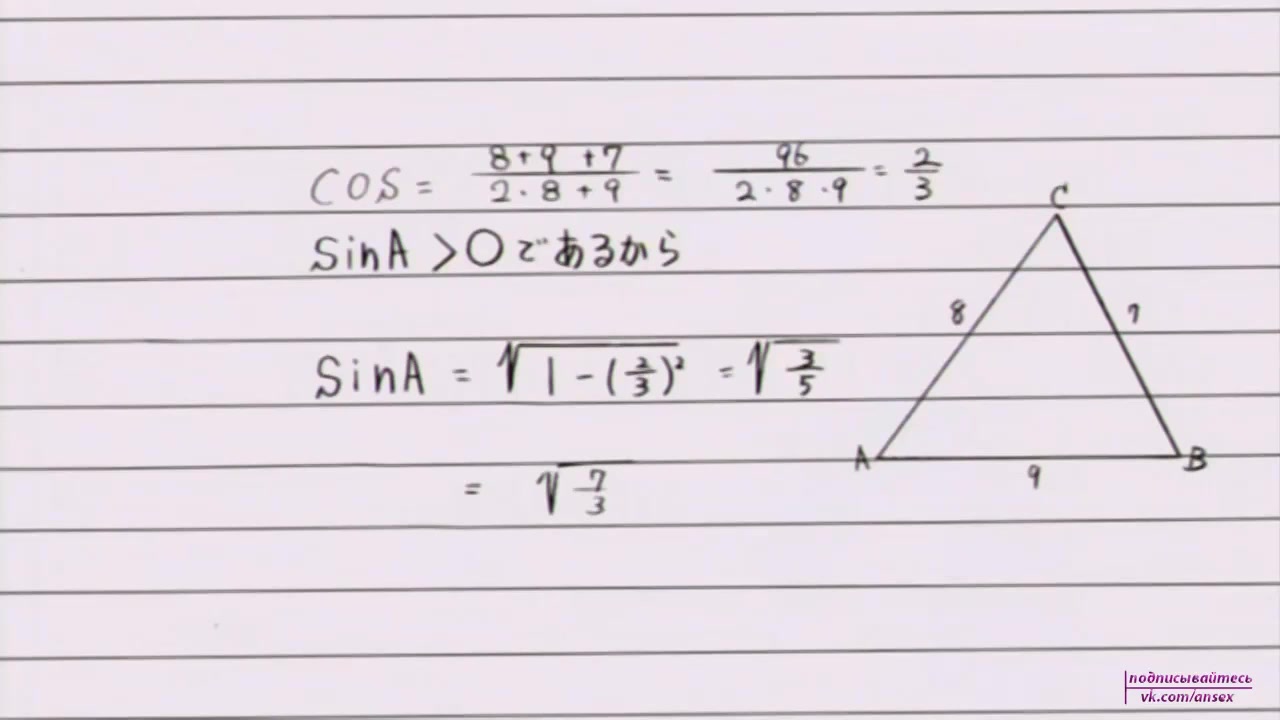 COS = 8+9 +7 / 2·8+9 = 96 / 2·8·9 = 2/3
SinA > 0 であるから
SinA = √1-(2/3)² = √3/5
= √7/3
C
8
7
A
B
9
подписывайтесь
vk.com/ansex